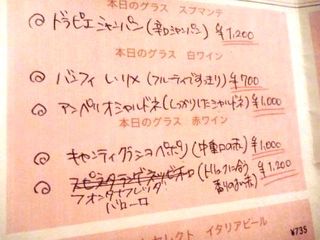 本日のグラス　スプマンテ
ドラピエ シャンパン (辛口シャンパン) ¥1,200
本日のグラス　白ワイン
バンフィ レ・リメ (フルーティですっきり) ¥700
アンペリオ シャルドネ (しっかりしたシャルドネ) ¥1,000
本日のグラス　赤ワイン
キャンティ クラシコ ペポリ (中重口の赤) ¥1,000
フォンタナフレッダ (トリュフに合う ¥1,200
バローロ 香りのよい赤)
セレクト　イタリアビール
¥735